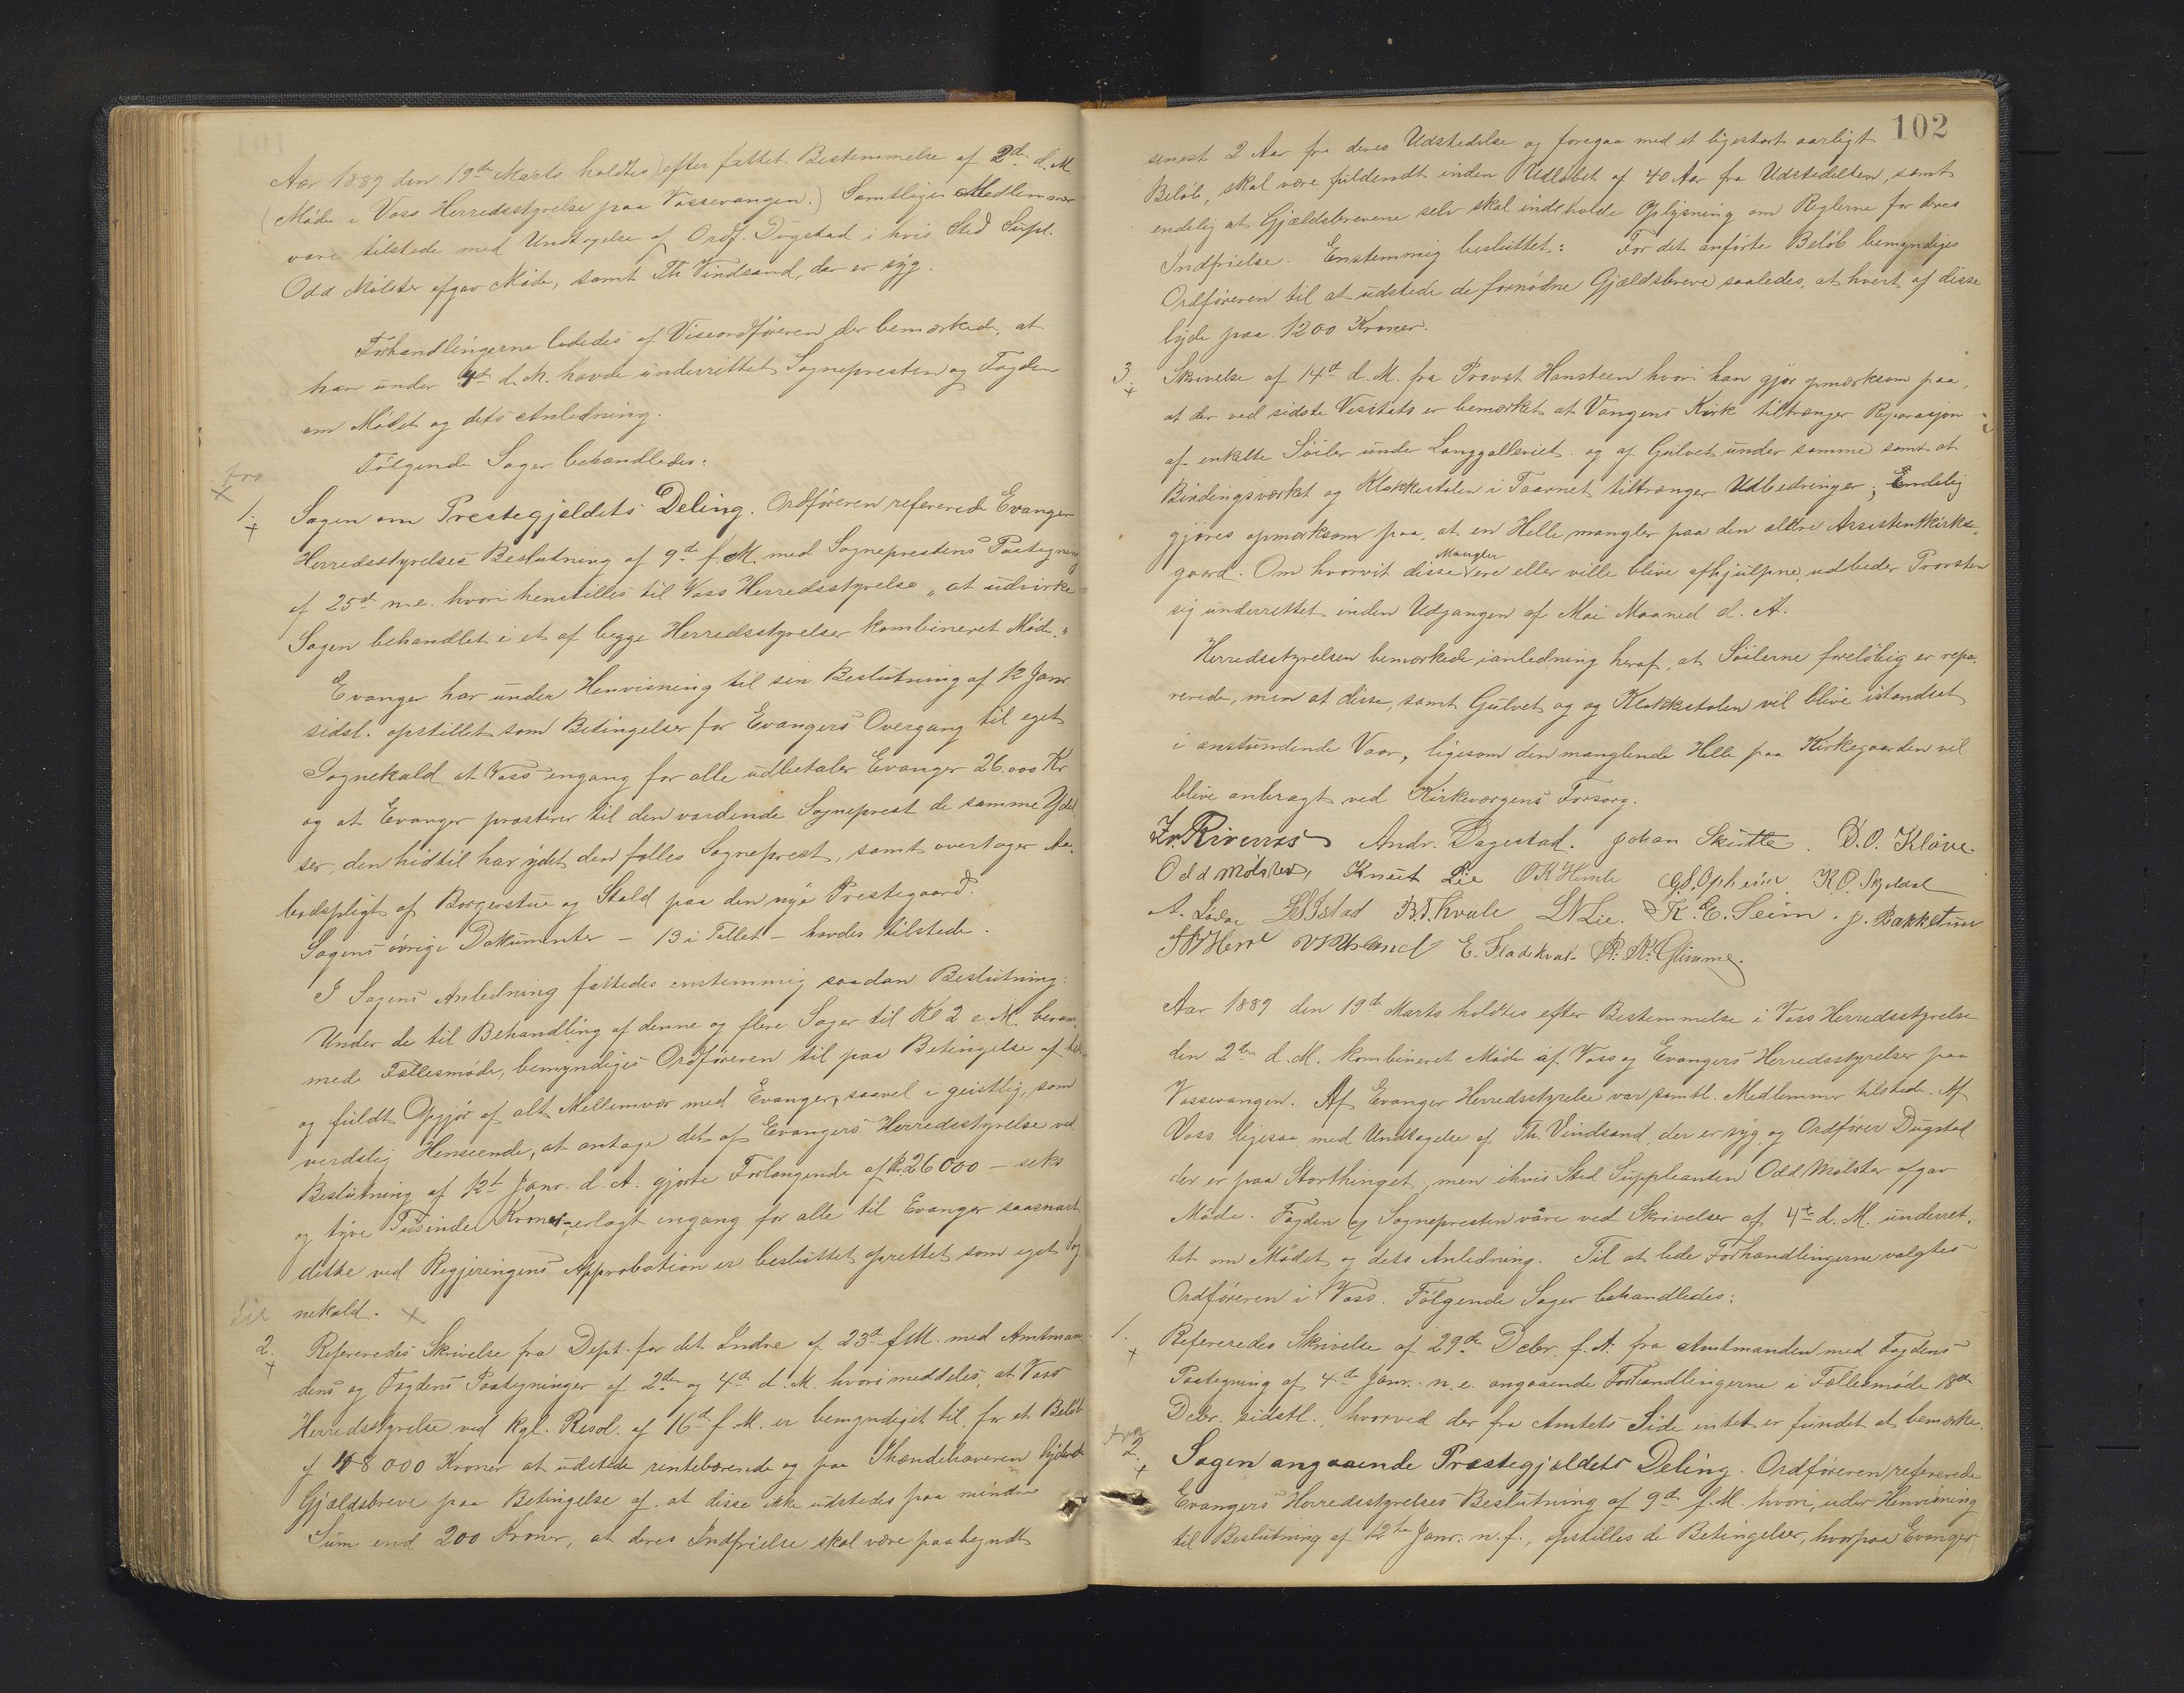 Aar 1889 den 19de Marts holdtes efter fattet Bestemmelse af 2den d. M.
(Møde i Voss Herredsstyrelse paa Vossevangen.) Samtlige Medlemmer
vare tilstede med Undtagelse af Ordf. Dugstad i hvis Sted Supl.
Odd Mølster afgav Møde, samt Th. Vindsand, der er syg.
Forhandlingerne lededes af Viseordføreren der bemærkede, at
han under 4de d. M. havde underrettet Sognepresten og Fogden
om Mødet og dets Anledning.
Følgende Sager behandledes:
fra
1. Sagen om Prestegjeldets Deling. Ordføreren refererede Evanger
Herredsstyrelses Beslutning af 9de f. M. med Sogneprestens Paategning
af 25de n.e. hvori henstilles til Voss Herredsstyrelse „at udvirke
Sagen behandlet i et af begge Herredsstyrelser kombineret Møde."
Evanger har under Henvisning til sin Beslutning af 12 Janr
sidstl. opstillet som Betingelser for Evangers Overgang til eget
Sognekald at Voss engang for alle udbetaler Evanger 26.000 Kr
og at Evanger præsterer til den vordende Sogneprest de samme Ydel
ser, den hidtil har ydet den fælles Sogneprest, samt overtager Aa-
bodspligt af Borgerstue og Stald paa den nye Prestegaard.
Sagens øvrige Dokumenter – 13 i Tallet – havdes tilstede.
I Sagens Anledning fattedes enstemmig saadan Beslutning:
Under de til Behandling af denne og flere Sager til Kl 2 e. M. beram-
mede Fællesmøde, bemyndiges Ordføreren til paa Betingelse af helt
og fuldt Opgjør af alt Mellemvær med Evanger, saavel i geistlig, som
verdslig Henseende, at antage det af Evangers Herredsstyrelse ved
Beslutning af 12te Janr. d. A. gjorte Forlangende af Kr. 26000 – seks
og tyve Tusinde Kroner, erlagt engang for alle til Evanger saasnart
dette ved Regjeringens Approbation er besluttet oprettet som eget Sog
nekald.
til
2. Refereredes Skrivelse fra Dept. for det Indre af 23de f. M. med Amtman-
dens og Fogdens Paategninger af 2den og 4de d. M. hvori meddeles, at Voss
Herredsstyrelse ved kgl. Resol. af 16de f. M. er bemyndiget til, for et Beløb
af 48 000 Kroner at udstede rentebærende og paa Ihændehaveren lydende
Gjældsbreve paa Betingelse af at disse ikke udstedes paa mindre
Sum end 200 Kroner, at deres Indfrielse skal være paabegyndt
102
senest 2 Aar fra deres Udstedelse og foregaa med et ligestort aarligt
Beløb, skal være fuldendt inden Udløbet af 40 Aar fra Udstedelsen, samt
endelig at Gjældsbrevene selv skal indeholde Oplysning om Reglerne for deres
Indfrielse. Enstemmig besluttet: For det anførte Beløb bemyndiges
Ordføreren til at udstede de fornødne Gjældsbreve saaledes, at hvert af disse
lyde paa 1200 Kroner.
3. Skrivelse af 14de d. M. fra Provst Hansteen hvori han gjør opmærksom paa,
at der ved sidste Visitats er bemærket at Vangens Kirke tiltrænger Reparasjon
af enkelte Søiler under Langgalleriet og af Gulvet under samme samt at
Bindingsværket og Klokkestolen i Taarnet tiltrænger Udbedringer; Endelig
gjøres opmærksom paa, at en Helle mangler paa den ældre Assistentkirke-
gaard. Om hvorvit disse Mangler ere eller ville blive afhjulpne, udbeder Provsten
sig underrettet inden Udgangen af Mai Maaned d. A.
Herredsstyrelsen bemærkede ianledning heraf, at Søilerne foreløbig er repa-
rerede, men at disse, samt Gulvet og og Klokkestolen vil blive istandsat
i anstundende Vaar, ligesom den manglende Helle paa Kirkegaarden vil
blive anbragt ved Kirkeværgens Forsorg.
Andr. Dagestad. Johan Skutle. D. O. Kløve.
Odd Mølster, Knut Lie O K Himle G. S. Opheim K. O. Skjeldal
B. T. Kvale L N Lie. K. E. Seim. J. Bakketun
E. Fladekval.
Aar 1889 den 19de Marts holdtes efter Bestemmelse i Voss Herredsstyrelse
den 2den d. M. kombineret Møde af Voss og Evangers Herredsstyrelser paa
Vossevangen. Af Evanger Herredsstyrelse var samtl. Medlemmer tilstede. Af
Voss ligesaa med Undtagelse af Th. Vindsand, der er syg og Ordfører Dugstad
der er paa Storthinget, men ihvis Sted Suppleanten Odd Mølster afgav
Møde. Fogden og Sognepresten vare ved Skrivelser af 4de d. M. underret-
tet om Mødet og dets Anledning. Til at lede Forhandlingerne valgtes
Ordføreren i Voss. Følgende Sager behandledes:
1. Refereredes Skrivelse af 29de Debr. f. A. fra Amtmanden med Fogdens
Paategning af 4de Janr. n. e. angaaende Forhandlingerne i Fællesmøde 18de
Debr. sidstl., hvorved der fra Amtets Side intet er fundet at bemærke.
fra
2. Sagen angaaende Præstegjældets Deling. Ordføreren refererede
Evangers Herredsstyrelses Beslutning af 9de f. M. hvori, under Henvisning
til Beslutning af 12te Janr. n. f., opstilles de Betingelser, hvorpaa Evanger